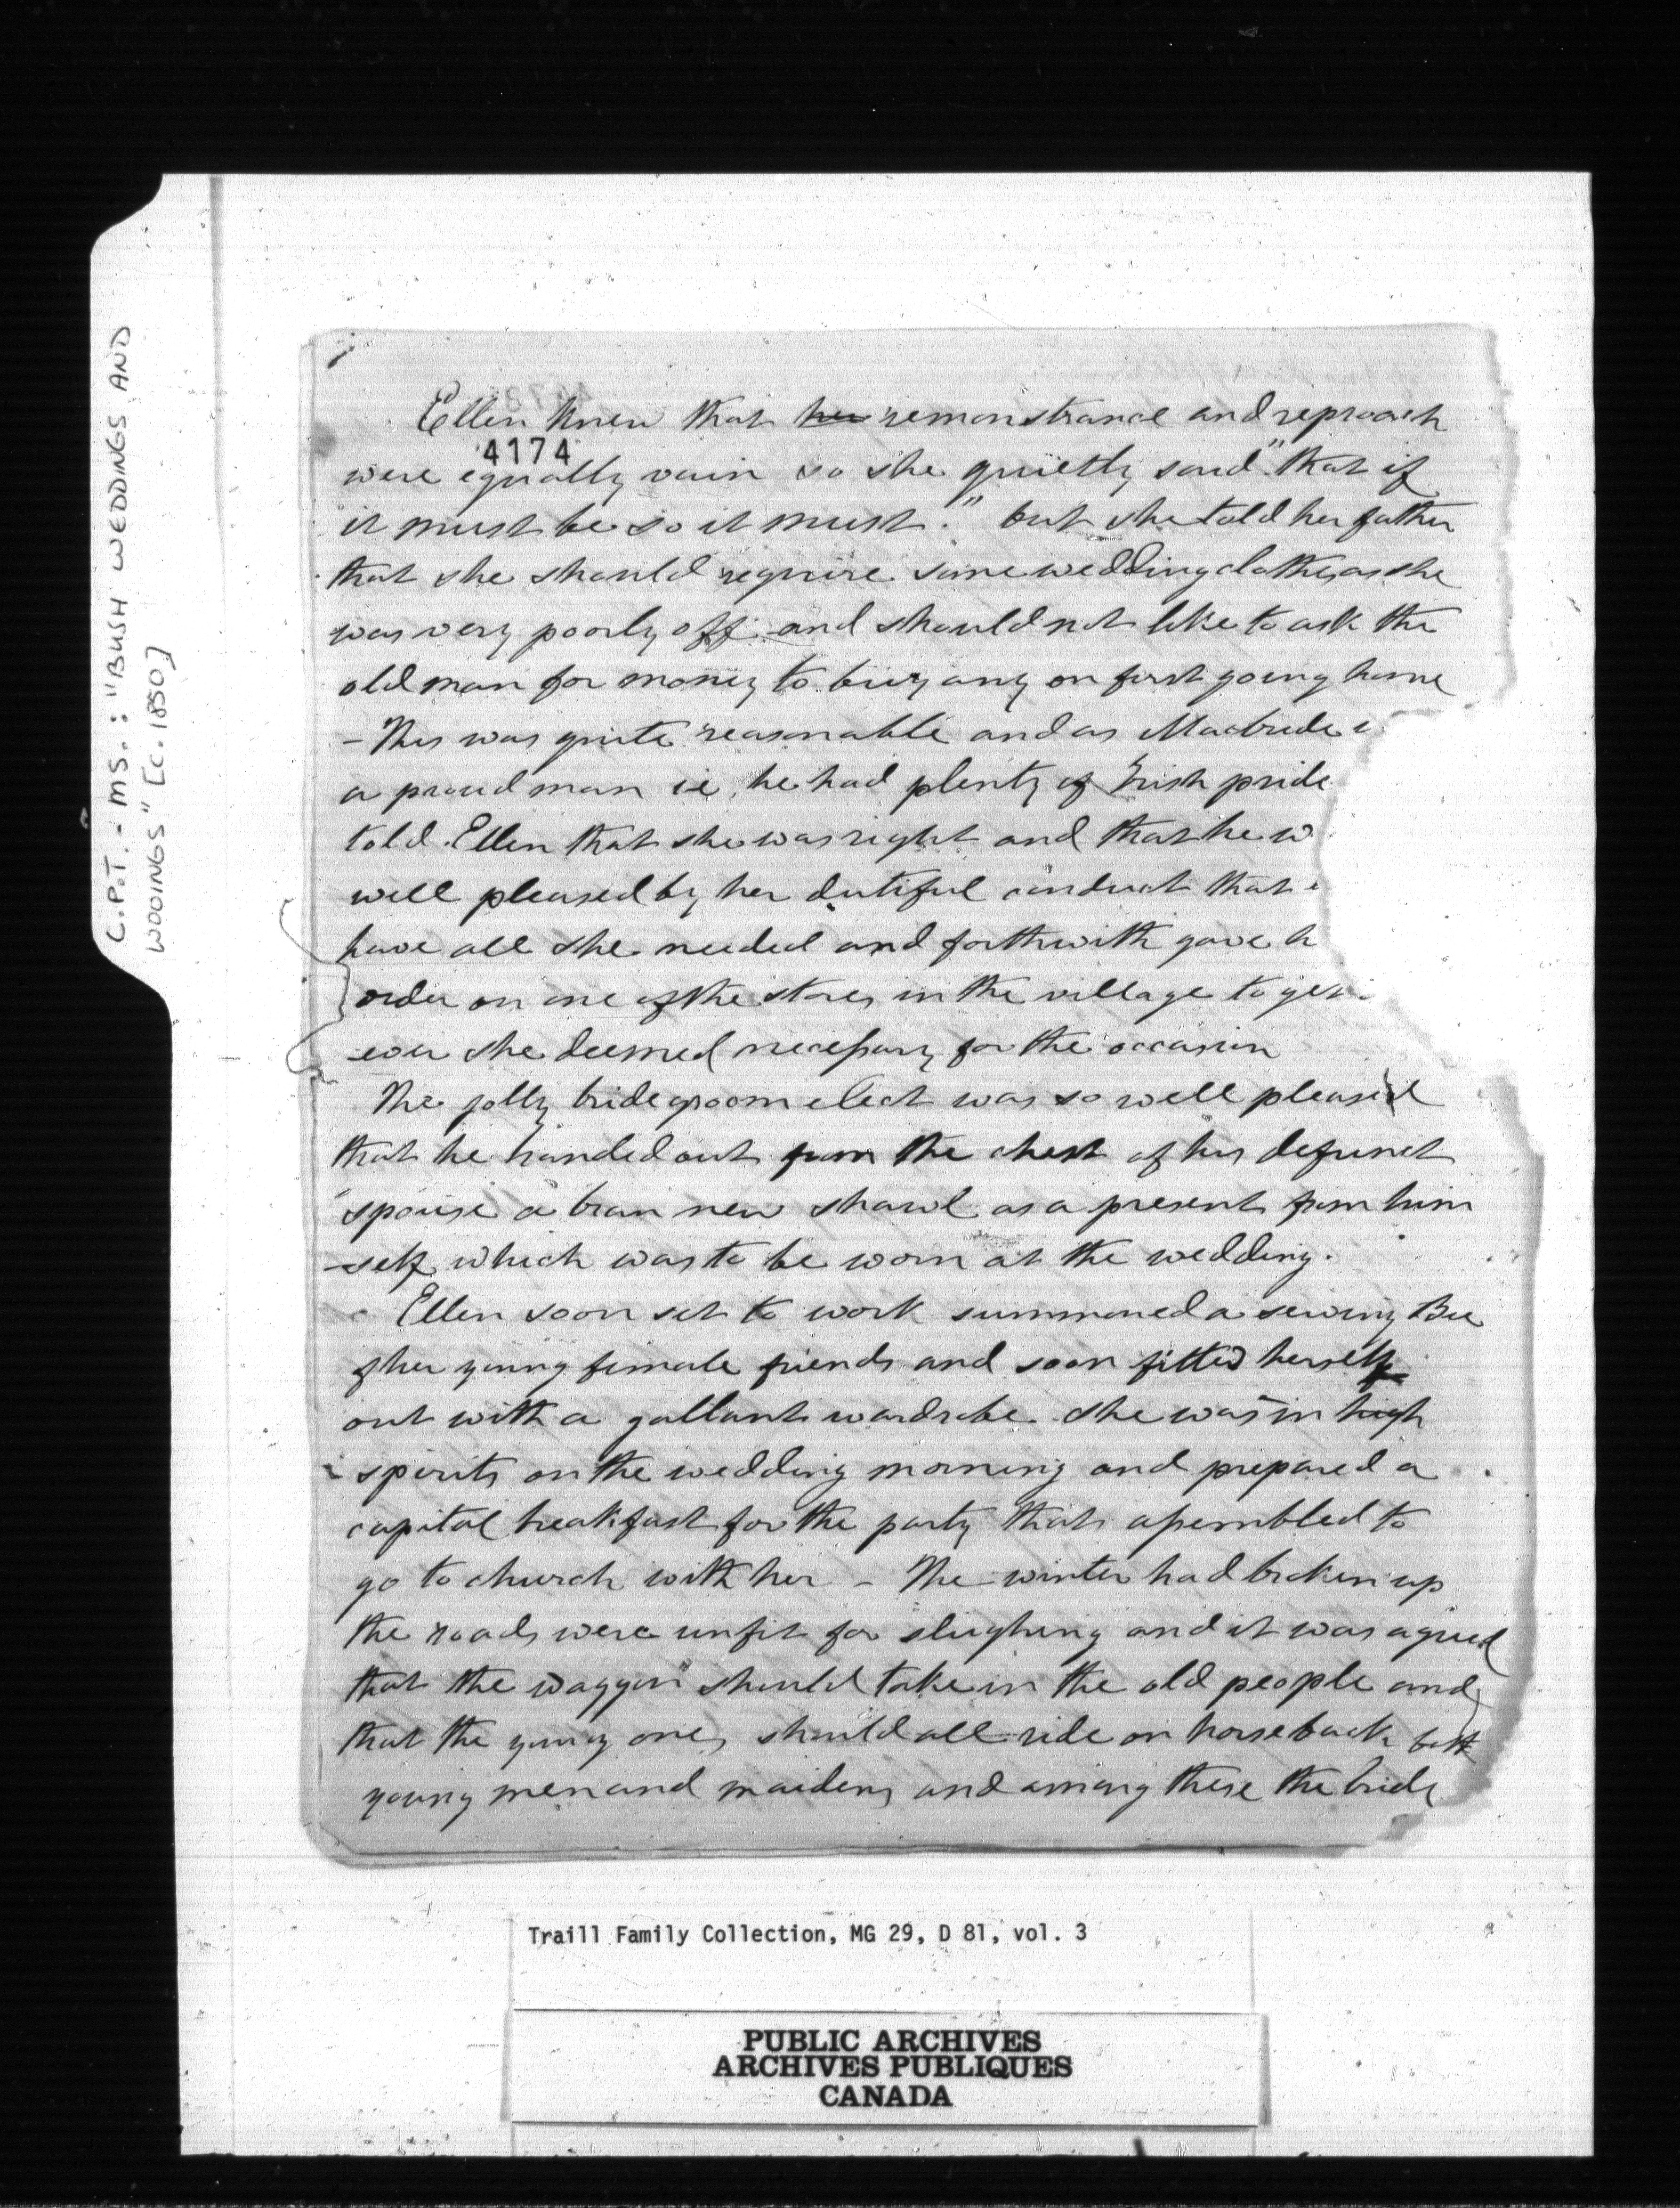 C.P.T. - MS.: "BUSH WEDDINGS AND
WOOINGS" [C. 1850]
Ellen knew that her remonstrance and reproach
4174
were equally vain so she quietly said "that if
it must be so it must." but she told her father
that she should require some wedding clothes as she
was very poorly off and should not like to ask the
old man for money to buy any on first going home
- This was quite reasonable and as Macbride
a proud man ie he had plenty of Irish pride
told Ellen that she was right and that he w
well pleased by her dutiful conduct that
have all she needed and forthwith gave h
order on one of the stores in the village to get
-ever she deemed necessary for the occasion
The jolly bridegroom elect was so well pleased
that he handed out from the chest of his defunct
spouse a bran new shawl as a present from him
-self which was to be worn at the wedding.
Ellen soon set to work summoned a sewing Bee
of her young female friends and soon fitted herself
out with a gallant wardrobe. She was in high
spirits on the wedding morning and prepared a
capital breakfast for the party that assembled to
go to church with her - The winter had broken up
the roads were unfit for sleighing and it was agreed
that the waggon should take in the old people and
that the young ones should all ride on horseback both
young men and maidens and among these the bride
Traill Family Collection, MG 29, D 81, vol. 3
PUBLIC ARCHIVES
ARCHIVES PUBLIQUES
CANADA